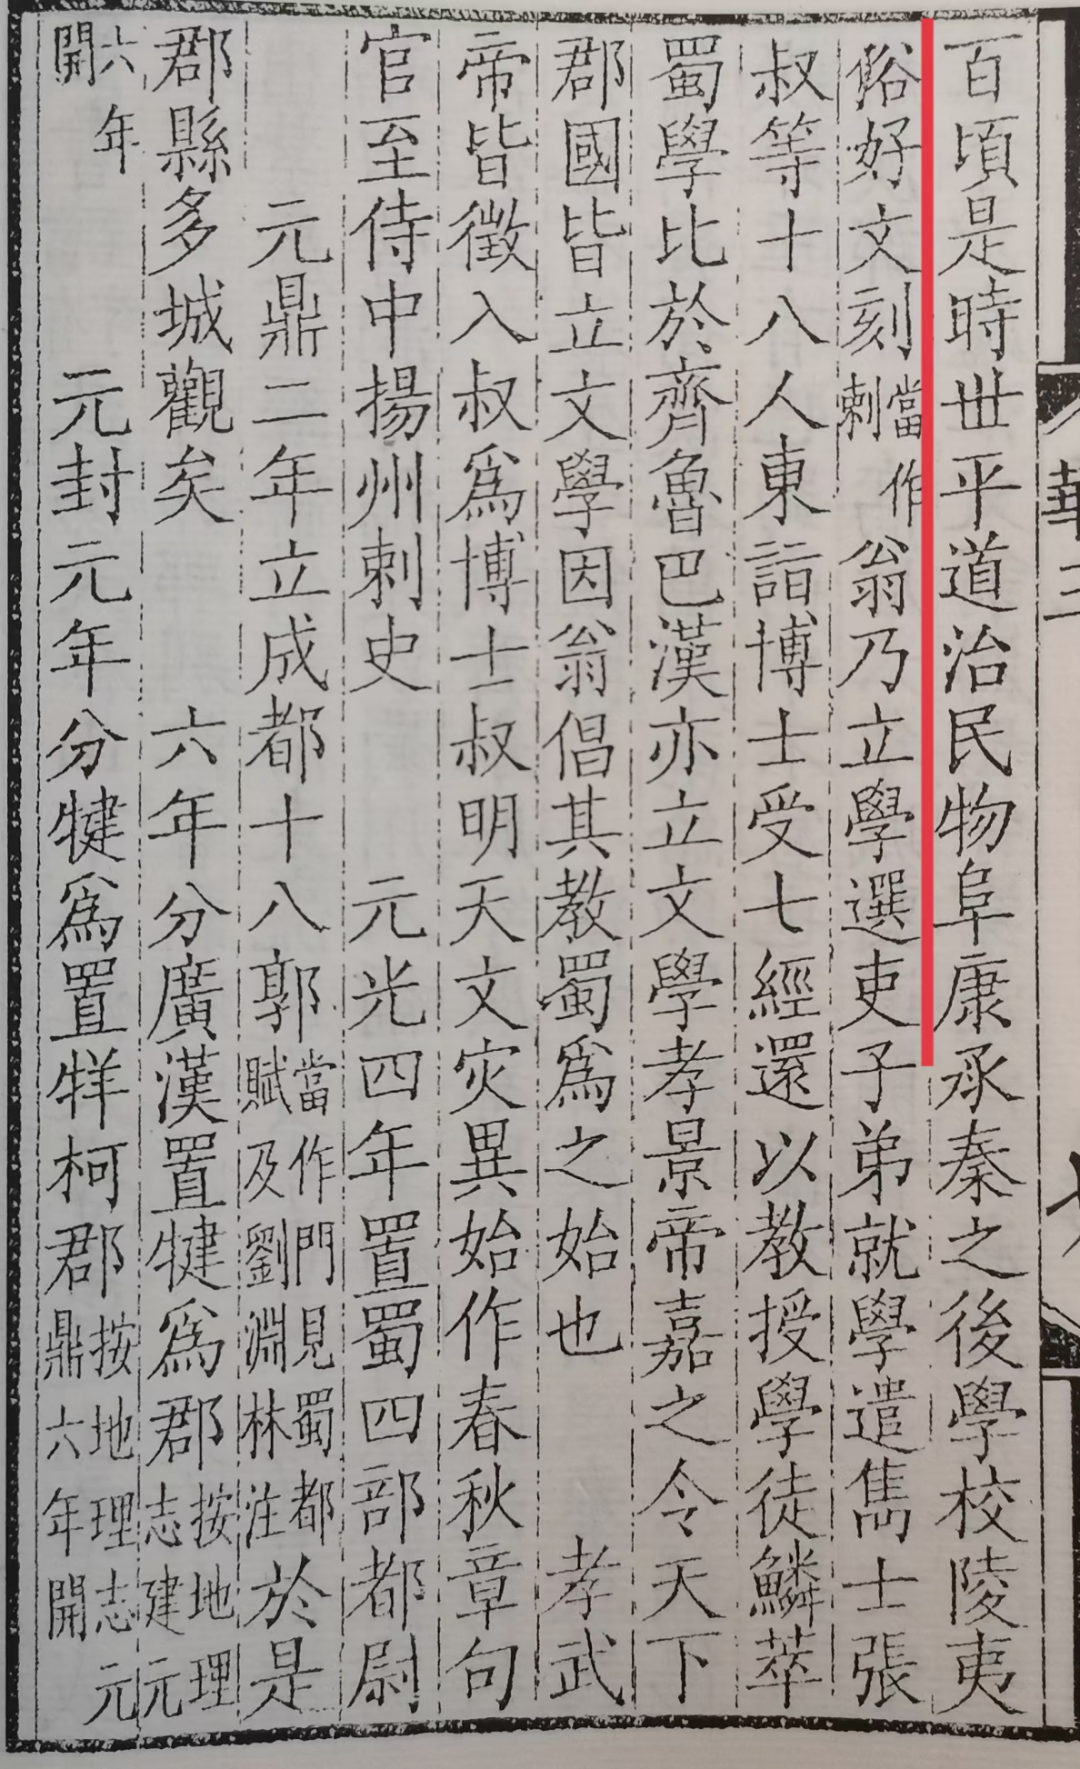 百頃是時世平道治民物阜康承秦之後學校陵夷
俗好文刻當作剌翁乃立學選吏子弟就學遣雋士張
叔等十八人東詣博士受七經還以教授學徒鱗萃
蜀學比於齊魯巴漢亦立文學孝景帝嘉之令天下
郡國皆立文學因翁倡其教蜀爲之始也　孝武
帝皆徵入叔爲博士叔明天文灾異始作春秋章句
官至侍中揚州剌史　元光四年置蜀四部都尉
元鼎二年立成都十八郭當作門見蜀都賦及劉淵林注於是
郡縣多城觀矣　六年分廣漢置犍爲郡按地理志建元
六年開　元封元年分犍爲置牂柯郡按地理志元鼎六年開